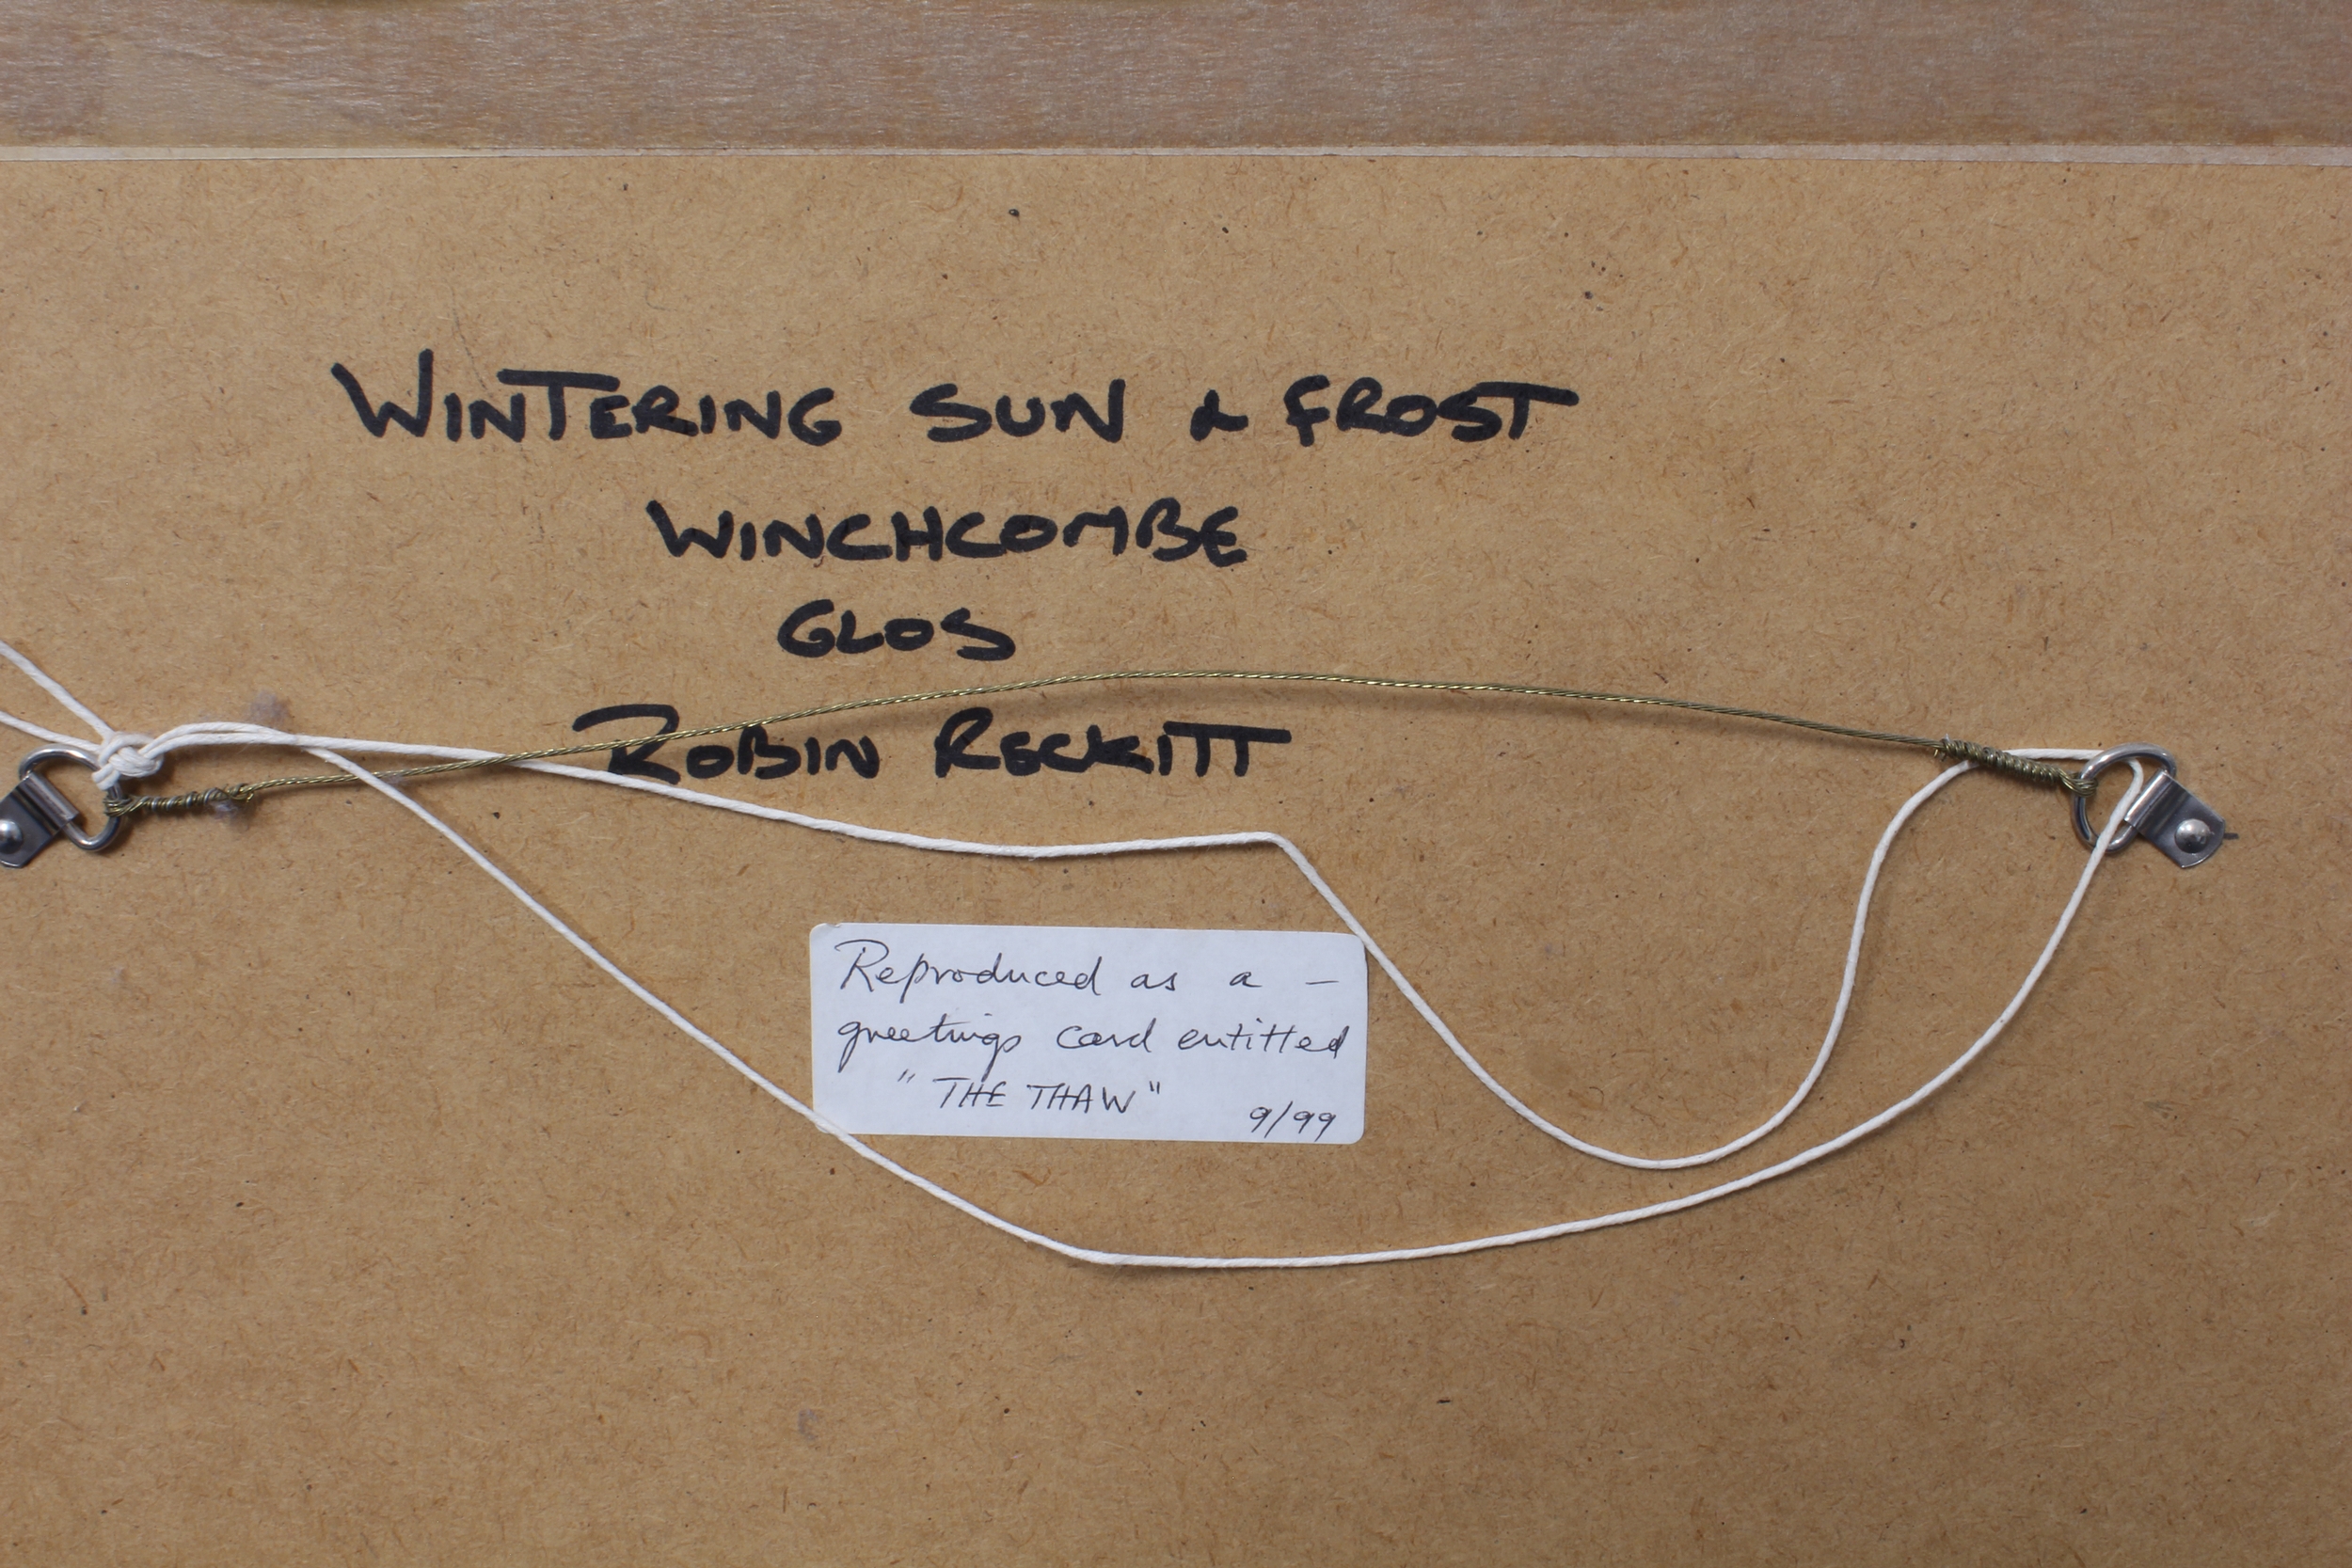 WINTERING SUN & FROST
WINCHCOMBE
GLOS
ROBIN RECKITT
Reproduced as a –
greetings card entitled
"THE THAW"
9/99